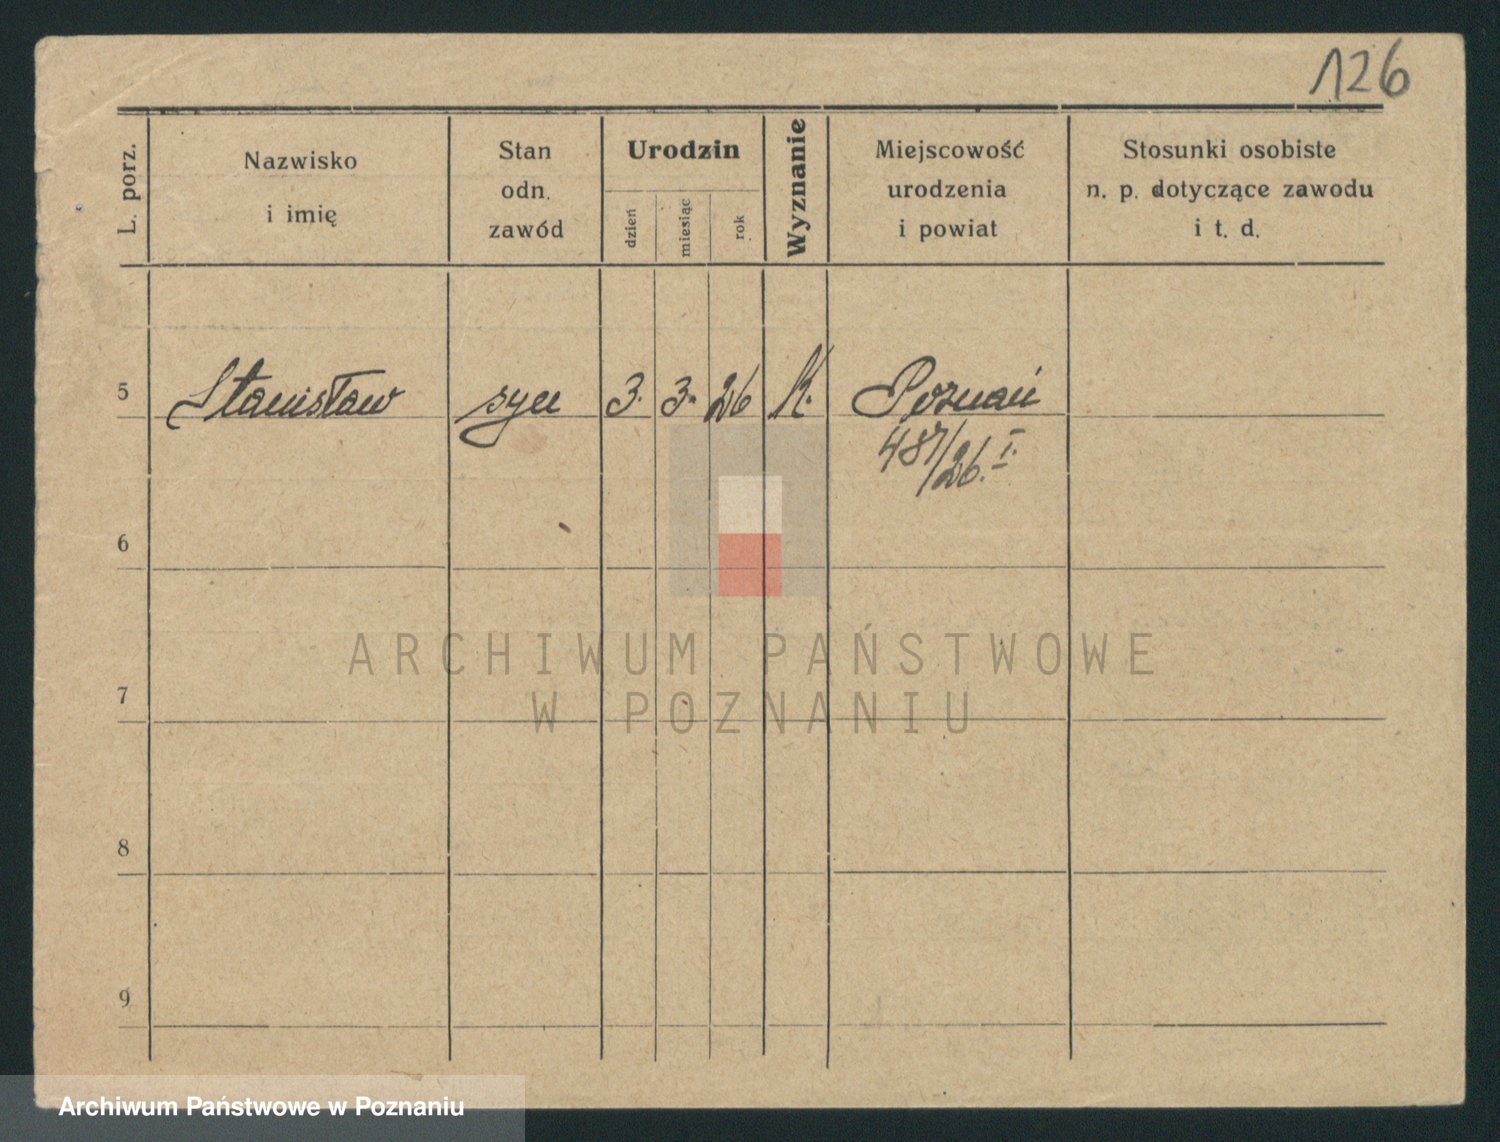 126
L. porz.
Nazwisko
i imię
Stan
odn.
zawód
Urodzin
dzień
miesiąc
rok
Wyznanie
Miejscowość
urodzenia
i powiat
Stosunki osobiste
n. p. dotyczące zawodu
i t. d.
5 Stanisław syn 3. 3. 26 K. Poznań
487/26. I.
6
7
8
9
ARCHIWUM PAŃSTWOWE
W POZNANIU
Archiwum Państwowe w Poznaniu